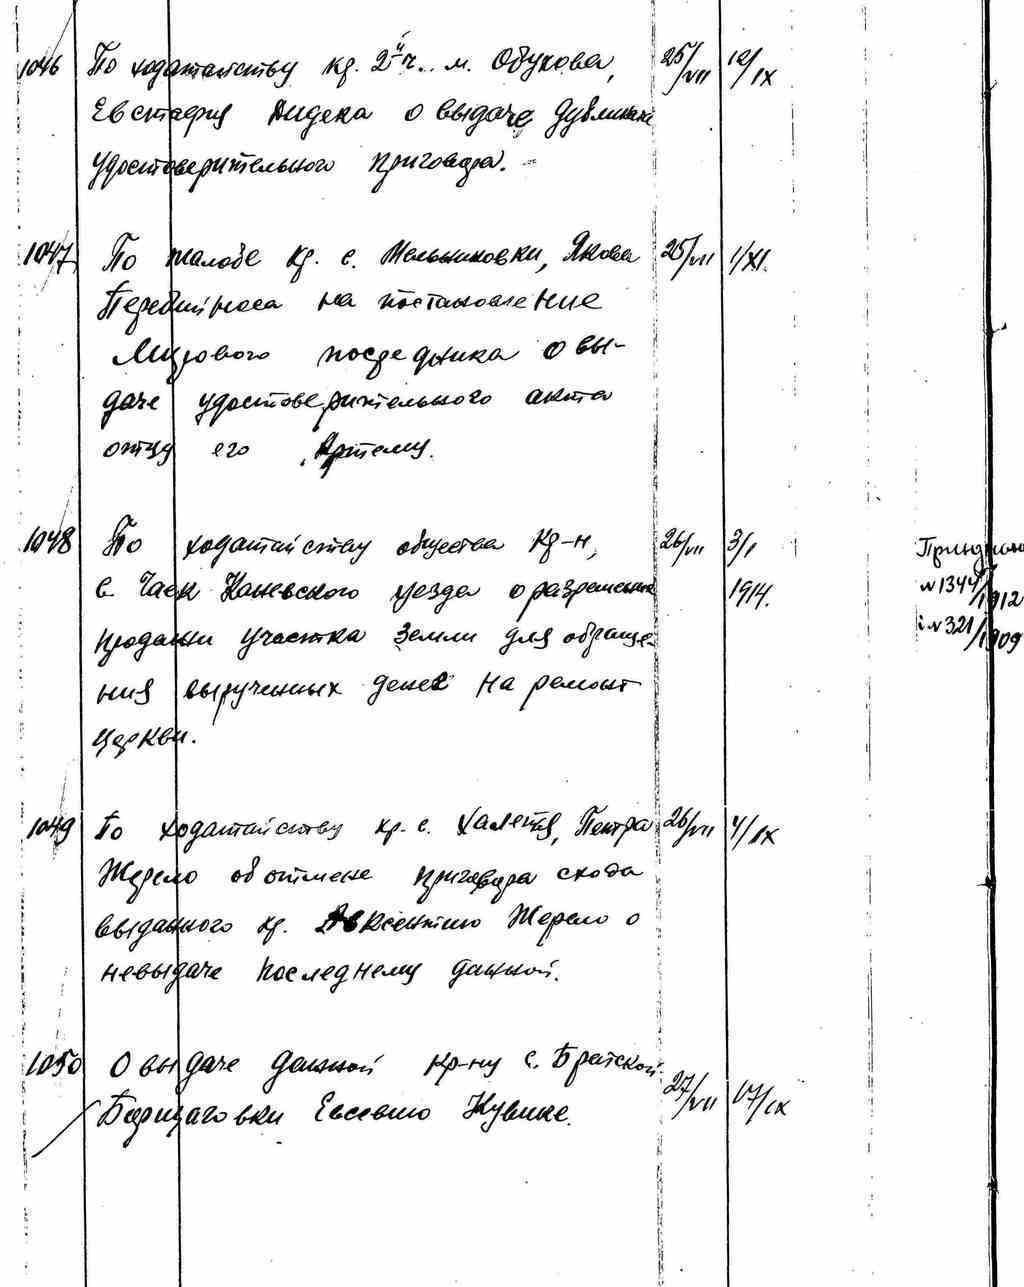 1046 По ходатайству кр. 2й ч. м. Обухова, 25/VII 12/IX
Евстафия Дидека о выдаче дубликата
удостоверительного приговора.
1047 По жалобе кр. с. Мельниковки, Якова 25/VII 1/XI.
Перебийноса на постановление
Мирового посредника о вы-
даче удостоверительного акта
отцу его Артему.
1048 По ходатайству общества кр-н, 26/VII 3/I
с. Каневского уезда о разрешении 1914.
продажи участка земли для обраще-
ния вырученных денег на ремонт
церкви.
№1344/1912
и №321/1909
1049 По ходатайству кр. с. Халепья, Петра 26/VII 4/IX
Жерело об отмене приговора схода
выданного кр. Авксентию Жерело о
невыдаче последнему данной.
1050 О выдаче данной кр-ну с. Братской 27/VII 17/IX
Евсевию